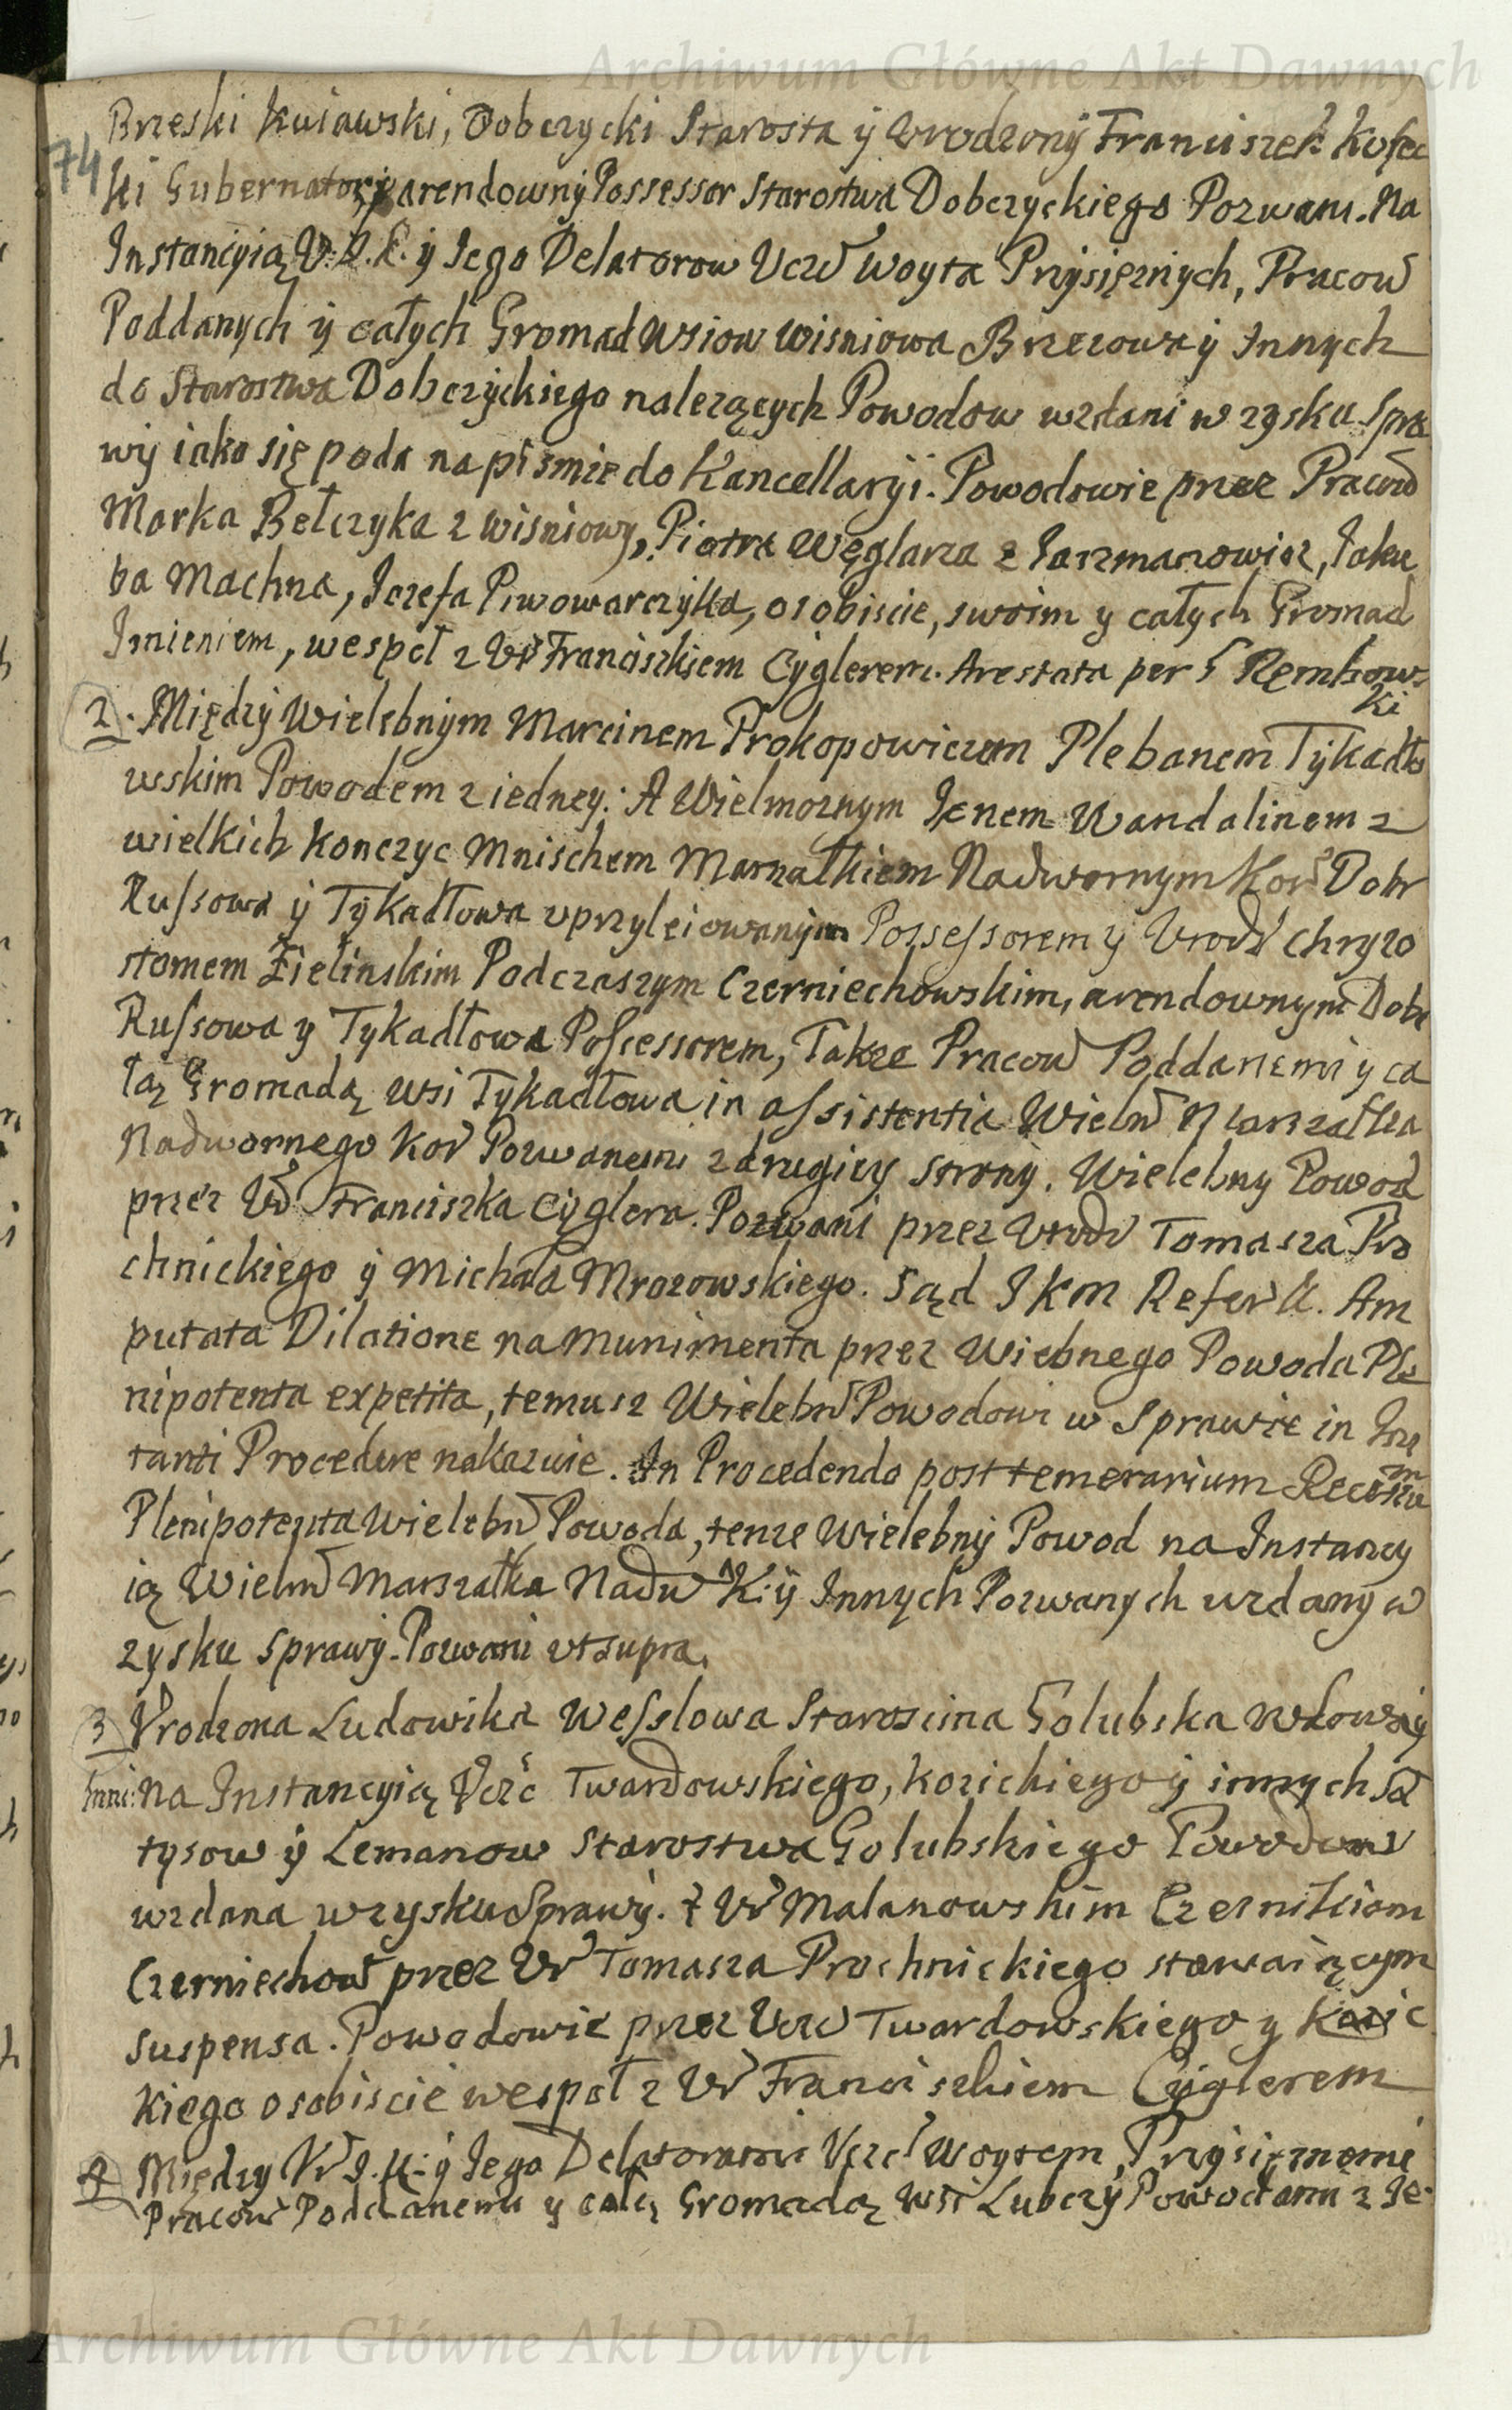 Archiwum Główne Akt Dawnych
74
Brzeski Kuiawski, Dobczycki Starosta ÿ Urodzonÿ Franciszek Kossec
ki Gubernator ÿ arendownÿ Possessor Starostwa Dobczyckiego Pozwani. Na
Instancyią U. I. K. ÿ Iego Delatorow Ucz͠ Woyta Przÿsiężnÿch, Pracow͠
Poddanÿch ÿ całÿch Gromad Wsiow Wisniowa Brzezowa ÿ Innÿch
do Starostwa Dobczÿckiego nalezących Powodow wzdani w zysku Spra
wÿ iako się poda na pismie do Kancellarÿi. Powodowie przez Pracow͠
Marka Bełczyka z Wisniowy, Piotra Węglarza z Iaszmanowic, Iaku
ba Machna, Iozefa Piwowarczÿka, osobiscie, swoim y całÿch Gromad
Imieniem, wespoł z Ur͠ Franciszkiem Cÿglerem. Arestata per S Rembows
ki
2. Międzÿ Wielebnÿm Marcinem Prokopowiczem Plebanem Tÿkadło
wskim Powodem z iedney: A Wielmoznym Ienem Wandalinem z
wielkich Konczyc Mnischem Marszałkiem Nadwornym Kor͠ Dobr
Russowa ÿ Tÿkadłowa uprzyleiowanÿm Possessorem y Urodz͠ Chryzo
stomem Zielinskim Podczaszym Czerniechowskim, arendownym Dobr
Russowa y Tykadłowa Possessorem, Takze Pracow͠ Poddanemi y ca
łą Gromadą wsi Tykadłowa in assistentia Wielm͠ Marszałka
Nadwornego Kor͠ Pozwanemi z drugiey Stronÿ. Wielebny Powod
przez Ur͠ Franciszka Cÿglera. Pozwani przez Urodz͠ Tomasza Pro
chnickiego ÿ Michała Mrozowskiego. Sąd I K M Refer͠ K. Am
putata Dilatione na Munimenta przez Wiebnego Powoda Ple
nipotenta expetita, temusz Wielebn͠ Powodowi w Sprawie in Ins
tanti Procedere nakazuie. In Procedendo post temerarium Recessum
Plenipotenta Wielebn͠ Powoda, tenze Wielebnÿ Powod na Instancy
ią Wielm͠ Marszałka Nadw͠ K: ÿ Innych Pozwanych wzdanÿ w
zysku Sprawÿ. Pozwani ut supra.
3 Urodzona Ludowika Wesslowa Staroscina Golubska Wdowa ÿ
Inni: na Instancyią Ucz͠c Twardowskiego, Kozickiego ÿ innych Soł
tysow ÿ Lemanow Starostwa Golubskiego Powodow
wzdana w zysku Sprawÿ. z Ur͠ Malanowskim Czesnikiem
Czerniechow͠ przez Ur͠ Tomasza Prochnickiego stawaiącym
suspensa. Powodowie przez Ucz͠ Twardowskiego y Kozic
kiego osobiscie wespoł z Ur͠ Franciszkiem Cyglerem
4 Międzÿ Ur͠ I. K: ÿ Iego Delatorami Ucz͠ Woytem, Przÿsiężnemi
Pracow͠ Poddanemi y całą Gromadą wsi Lubczÿ Powodami z Ie
Archiwum Główne Akt Dawnych